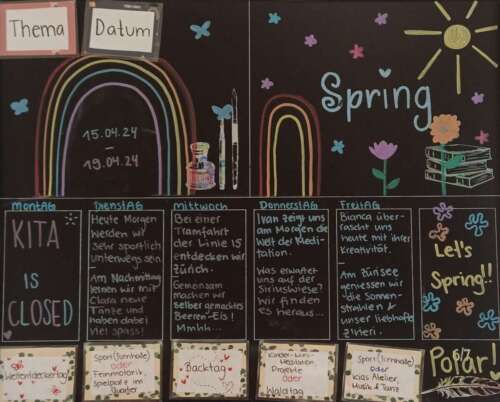 Thema
Datum
15.04.24
–
19.04.24
Spring
Montag
KITA
IS
CLOSED
Dienstag
Heute Morgen
werden wir
sehr sportlich
unterwegs sein
–
Am Nachmittag
lernen wir mit
Clara neue
Tänze und
haben dabei
viel Spass!
Mittwoch
Bei einer
Tramfahrt
der Linie 15
entdecken wir
Zürich.
Gemeinsam
machen wir
selber gemachtes
Beeren-Eis!
Mmhh...
Donnerstag
Ivan zeigt uns
am Morgen die
Welt der Medi-
tation.
Was erwartet
uns auf der
Siriuswiese?
Wir finden
es heraus...
Freitag
Bianca über-
rascht uns
heute mit ihrer
Kreativität.
–
Am Zürisee
geniessen wir
die Sonnen-
strahlen &
unser liebhafte
Zvieri.
Let's
Spring!!
Weltentdeckertag!
Sport (Turnhalle)
oder
Feinmotorik,
Spielpark im
Quartier
Backtag
Kinder-Uni-
Meditation
Projekte
oder
Waldtag
Sport (Turnhalle)
oder
Kids Atelier,
Musik & Tanz
Polar!